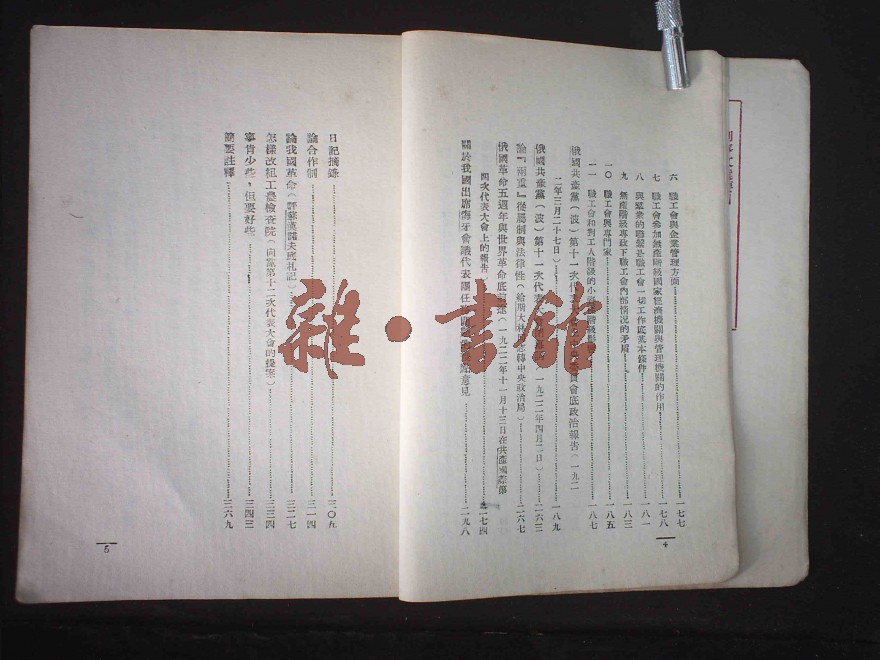 六 職工會與企業管理方面……一七七
七 職工會參加無產階級國家經濟機關與管理機關的作用……一七八
八 與羣衆的聯繫是職工會一切工作底基本條件……一八一
九 無產階級專政下職工會內部情況的矛盾……一八三
一〇 職工會與專門家……一八五
一一 職工會和對工人階級的小資產階級影響……一八七
俄國共產黨(波)第十一次代表大會
員會底政治報告(一九二
二年三月二十七日)……一八九
俄國共產黨(波)第十一次代表
一九二二年四月二日)……二六三
論『兩重』從屬制與法律性(給斯大林同志轉中央政治局)……二六七
俄國革命五週年與世界革命底前途(一九二二年十一月十三日在共產國際第
四次代表大會上的報告)……二七四
關於我國出席海牙會議代表團任務
意見……二九八
4
日記摘錄……三〇九
論合作制……三一四
論我國革命(評蘇漢諾夫底札記)……三二七
怎樣改組工農檢查院(向黨第十二次代表大會的提案)……三三四
寧肯少些,但要好些……三四三
簡要註釋……三六九
5
雜·書館